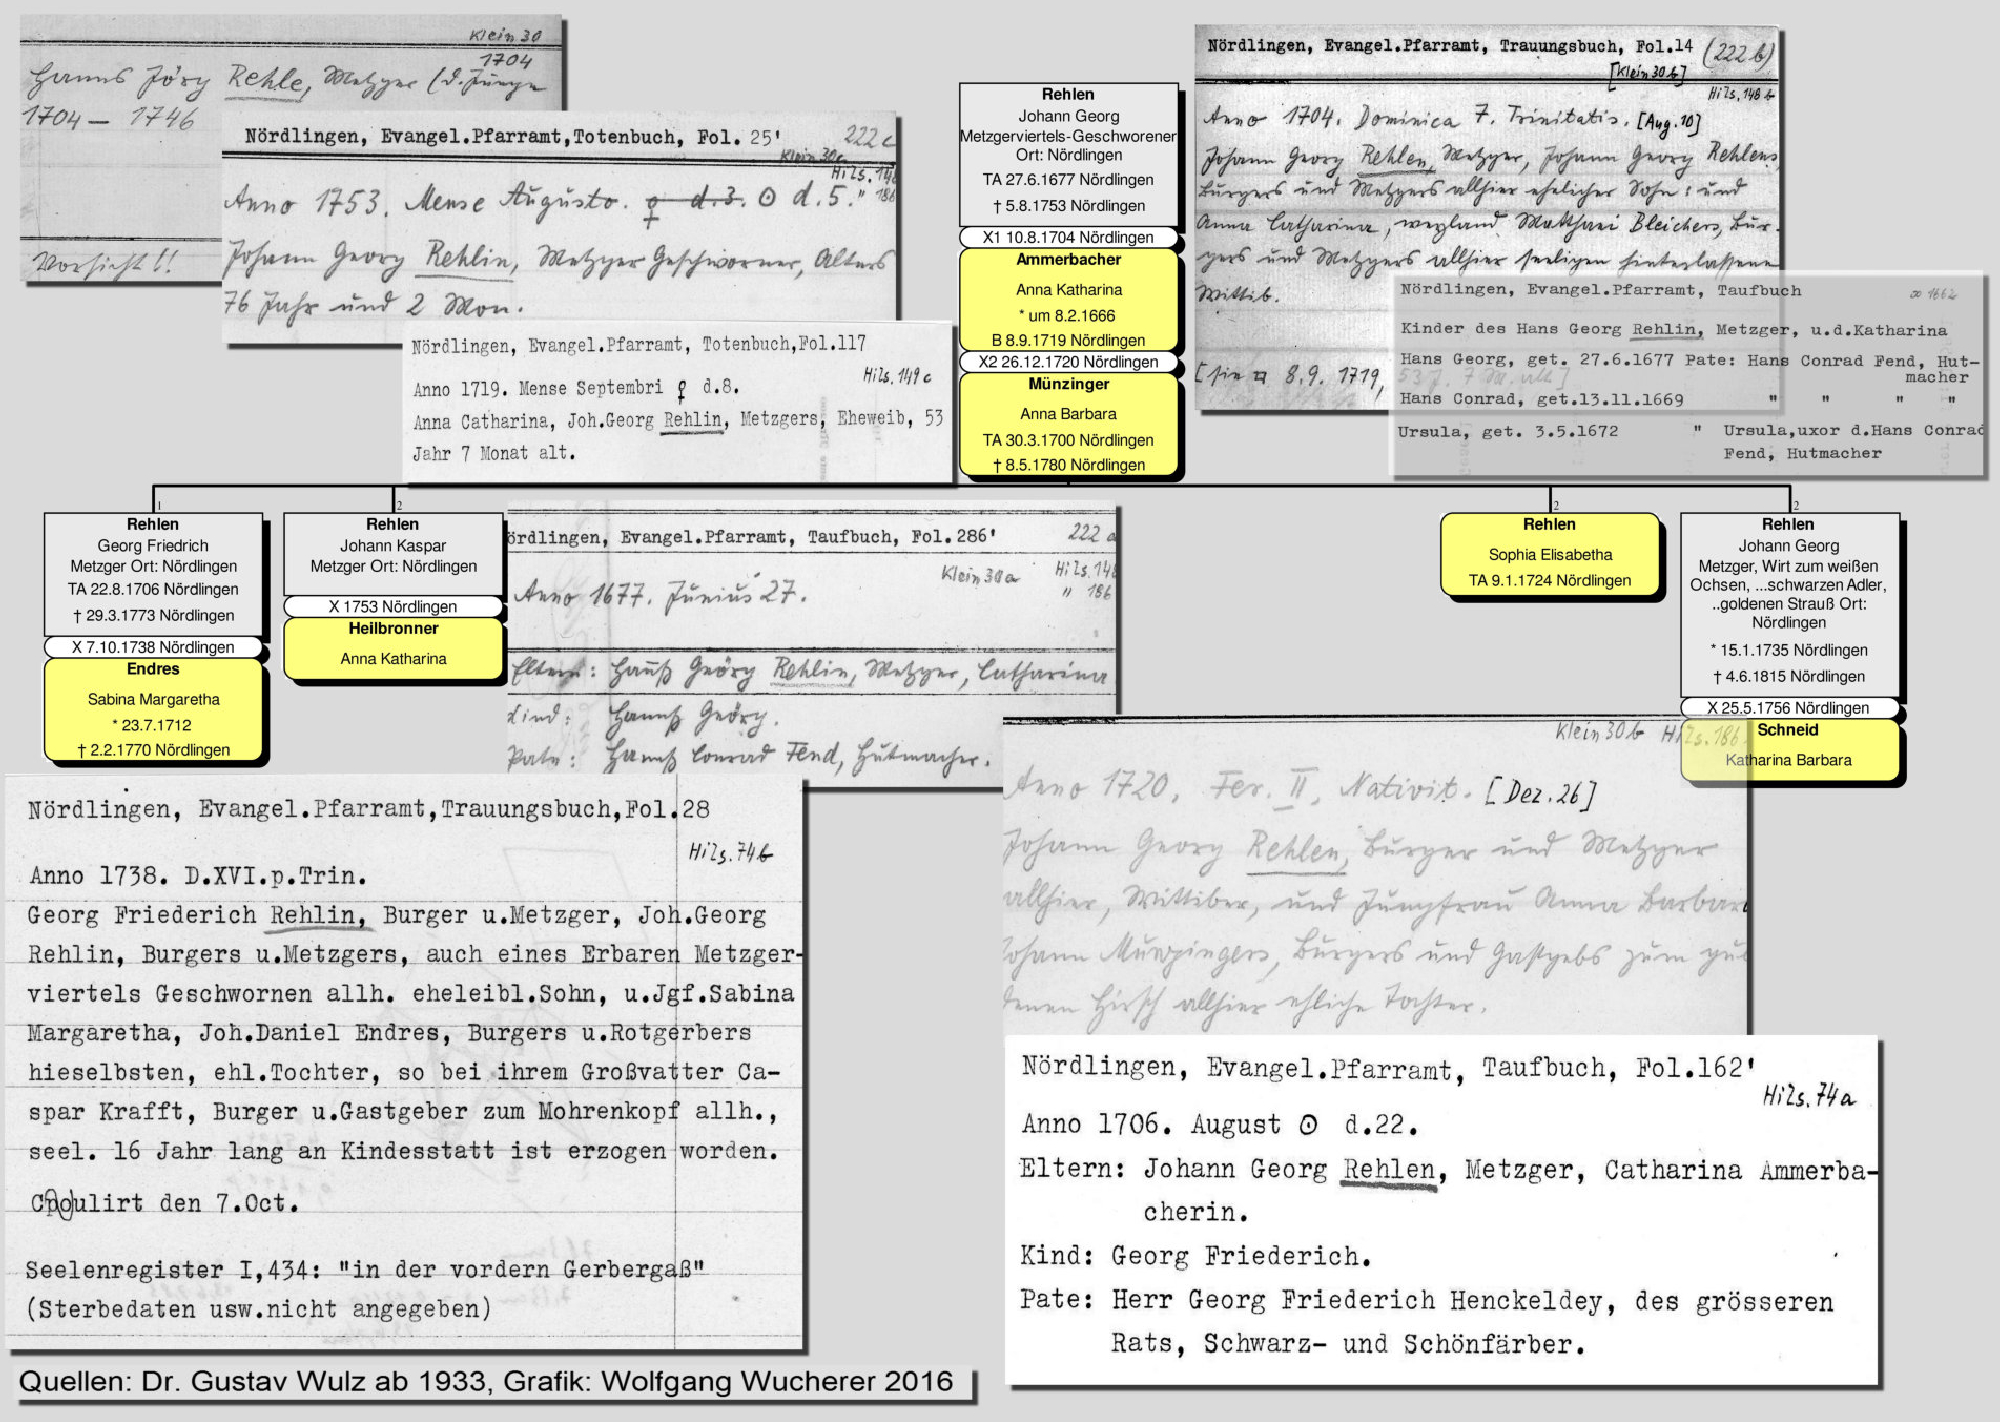 Klein 30
1704
Hanns Jörg Rehle, Metzger (d. Junge
1704 – 1746
Vorsicht!!
Nördlingen, Evangel.Pfarramt,Totenbuch, Fol. 25' 222 c
Klein 30c
Hils. 148
" 186
Anno 1753. Mense Augusto. ♀ d.3. ⊙ d.5.
Johann Georg Rehlin, Metzger Geschworner, Alters
76 Jahr und 2 Mon.
Nördlingen, Evangel.Pfarramt, Totenbuch,Fol.117
Hils. 149c
Anno 1719. Mense Septembri ♀ d.8.
Anna Catharina, Joh.Georg Rehlin, Metzgers, Eheweib, 53
Jahr 7 Monat alt.
Rehlen
Johann Georg
Metzgerviertels-Geschworener
Ort: Nördlingen
TA 27.6.1677 Nördlingen
† 5.8.1753 Nördlingen
X1 10.8.1704 Nördlingen
Ammerbacher
Anna Katharina
* um 8.2.1666
B 8.9.1719 Nördlingen
X2 26.12.1720 Nördlingen
Münzinger
Anna Barbara
TA 30.3.1700 Nördlingen
† 8.5.1780 Nördlingen
Nördlingen, Evangel.Pfarramt, Trauungsbuch, Fol.14 (222 b)
[Klein 30 b]
Hils. 148 b
Anno 1704. Dominica 7. Trinitatis. [Aug. 10]
Johann Georg Rehlen, Metzger, Johann Georg Rehlens
Burgers und Metzgers allhier ehelicher Sohn: und
Anna Catharina, weyland Matthaei Bleichers, Bur-
gers und Metzgers allhier seeligen hinterlassene
Wittib.
[sie 8.9. 1719, 53 J. 7 M. alt]
Nördlingen, Evangel.Pfarramt, Taufbuch ∞ 1662
Kinder des Hans Georg Rehlin, Metzger, u.d.Katharina
Hans Georg, get. 27.6.1677 Pate: Hans Conrad Fend, Hut-
macher
Hans Conrad, get.13.11.1669 " " " "
Ursula, get. 3.5.1672 " Ursula,uxor d.Hans Conrad
Fend, Hutmacher
1
Rehlen
Georg Friedrich
Metzger Ort: Nördlingen
TA 22.8.1706 Nördlingen
† 29.3.1773 Nördlingen
X 7.10.1738 Nördlingen
Endres
Sabina Margaretha
* 23.7.1712
† 2.2.1770 Nördlingen
2
Rehlen
Johann Kaspar
Metzger Ort: Nördlingen
X 1753 Nördlingen
Heilbronner
Anna Katharina
ördlingen, Evangel.Pfarramt, Taufbuch, Fol.286' 222 a
Klein 30a Hils. 148
" 186
Anno 1677. Junius 27.
Eltern: Hanß Georg Rehlin, Metzger, Catharina
Kind: Hannß Georg.
Pate: Hannß Conrad Fend, Hutmacher.
2
Rehlen
Sophia Elisabetha
TA 9.1.1724 Nördlingen
2
Rehlen
Johann Georg
Metzger, Wirt zum weißen
Ochsen, ...schwarzen Adler,
..goldenen Strauß Ort:
Nördlingen
* 15.1.1735 Nördlingen
† 4.6.1815 Nördlingen
X 25.5.1756 Nördlingen
Schneid
Katharina Barbara
Klein 30b Hils. 186
Anno 1720. Fer. II. Nativit. [Dez. 26]
Johann Georg Rehlen, Burger und Metzger
allhier, Wittiber, und Jungfrau Anna Barbara
Johann Munzingers, Burgers und Gastgebs zum gul
denen Hirsch allhier ehliche Tochter.
Nördlingen, Evangel.Pfarramt,Trauungsbuch,Fol.28
Hils. 74b
Anno 1738. D.XVI.p.Trin.
Georg Friederich Rehlin, Burger u.Metzger, Joh.Georg
Rehlin, Burgers u.Metzgers, auch eines Erbaren Metzger-
viertels Geschwornen allh. eheleibl.Sohn, u.Jgf.Sabina
Margaretha, Joh.Daniel Endres, Burgers u.Rotgerbers
hieselbsten, ehl.Tochter, so bei ihrem Großvatter Ca-
spar Krafft, Burger u.Gastgeber zum Mohrenkopf allh.,
seel. 16 Jahr lang an Kindesstatt ist erzogen worden.
Copulirt den 7.Oct.
Seelenregister I,434: "in der vordern Gerbergaß"
(Sterbedaten usw.nicht angegeben)
Nördlingen, Evangel.Pfarramt, Taufbuch, Fol.162'
Hils. 74a
Anno 1706. August ⊙ d.22.
Eltern: Johann Georg Rehlen, Metzger, Catharina Ammerba-
cherin.
Kind: Georg Friederich.
Pate: Herr Georg Friederich Henckeldey, des grösseren
Rats, Schwarz- und Schönfärber.
Quellen: Dr. Gustav Wulz ab 1933, Grafik: Wolfgang Wucherer 2016